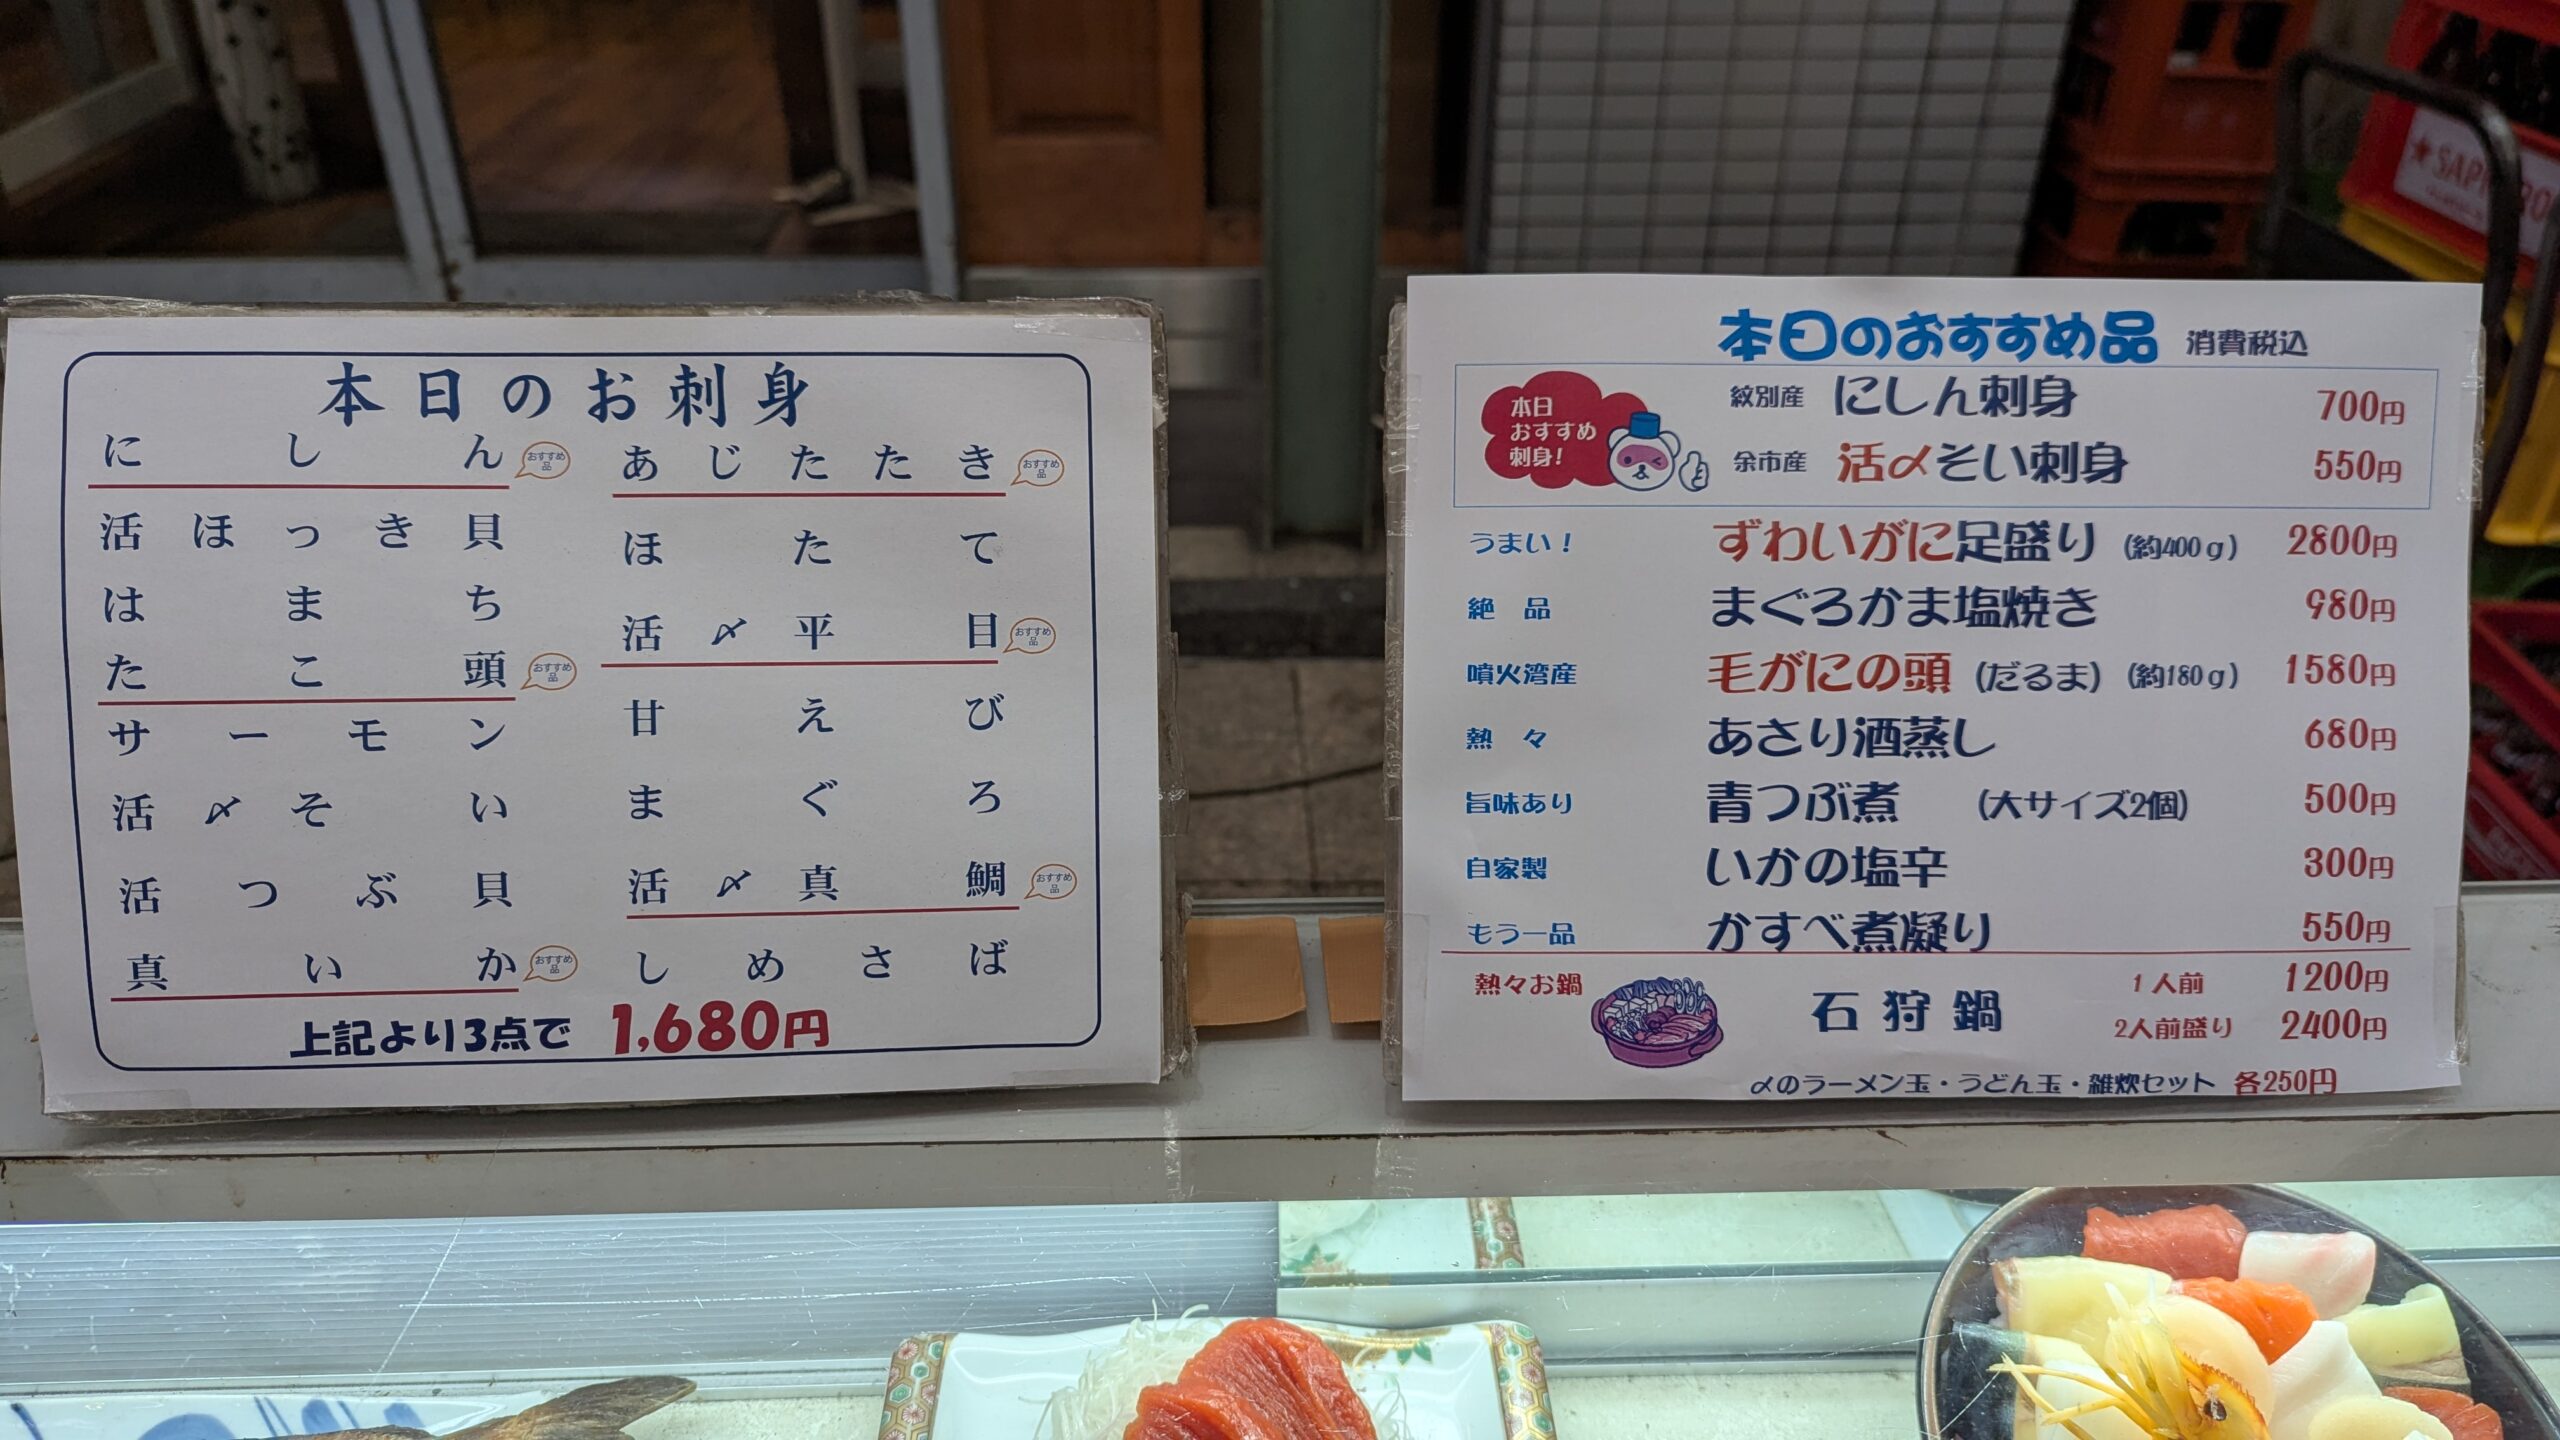 本日のお刺身
にしん おすすめ品
活ほっき貝
はまち
たこ頭 おすすめ品
サーモン
活〆そい
活つぶ貝
真いか おすすめ品
あじたたき おすすめ品
ほたて
活〆平目 おすすめ品
甘えび
まぐろ
活〆真鯛 おすすめ品
しめさば
上記より3点で 1,680円
本日のおすすめ品 消費税込
本日
おすすめ
刺身!
紋別産 にしん刺身 700円
余市産 活〆そい刺身 550円
うまい! ずわいがに足盛り (約400g) 2800円
絶品 まぐろかま塩焼き 980円
噴火湾産 毛がにの頭 (だるま) (約180g) 1580円
熱々 あさり酒蒸し 680円
旨味あり 青つぶ煮 (大サイズ2個) 500円
自家製 いかの塩辛 300円
もう一品 かすべ煮凝り 550円
熱々お鍋 石狩鍋 1人前 1200円
2人前盛り 2400円
〆のラーメン玉・うどん玉・雑炊セット 各250円
★SAPPORO